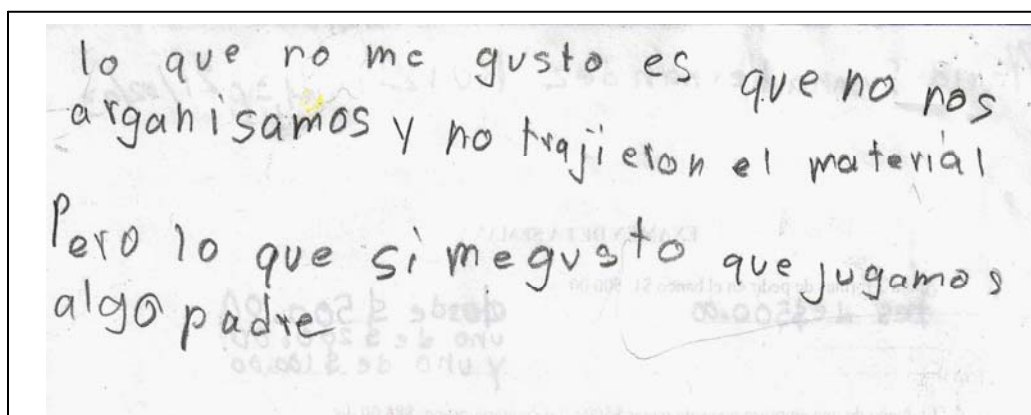 lo que no me gusto es que no nos
arganisamos y no trajieron el material
Pero lo que si megusto que jugamos
algo padre